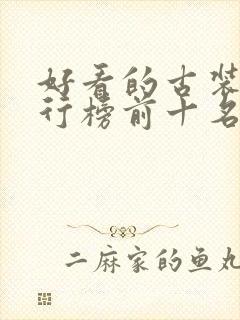 好看的古装
行榜前十名
二麻家的鱼丸